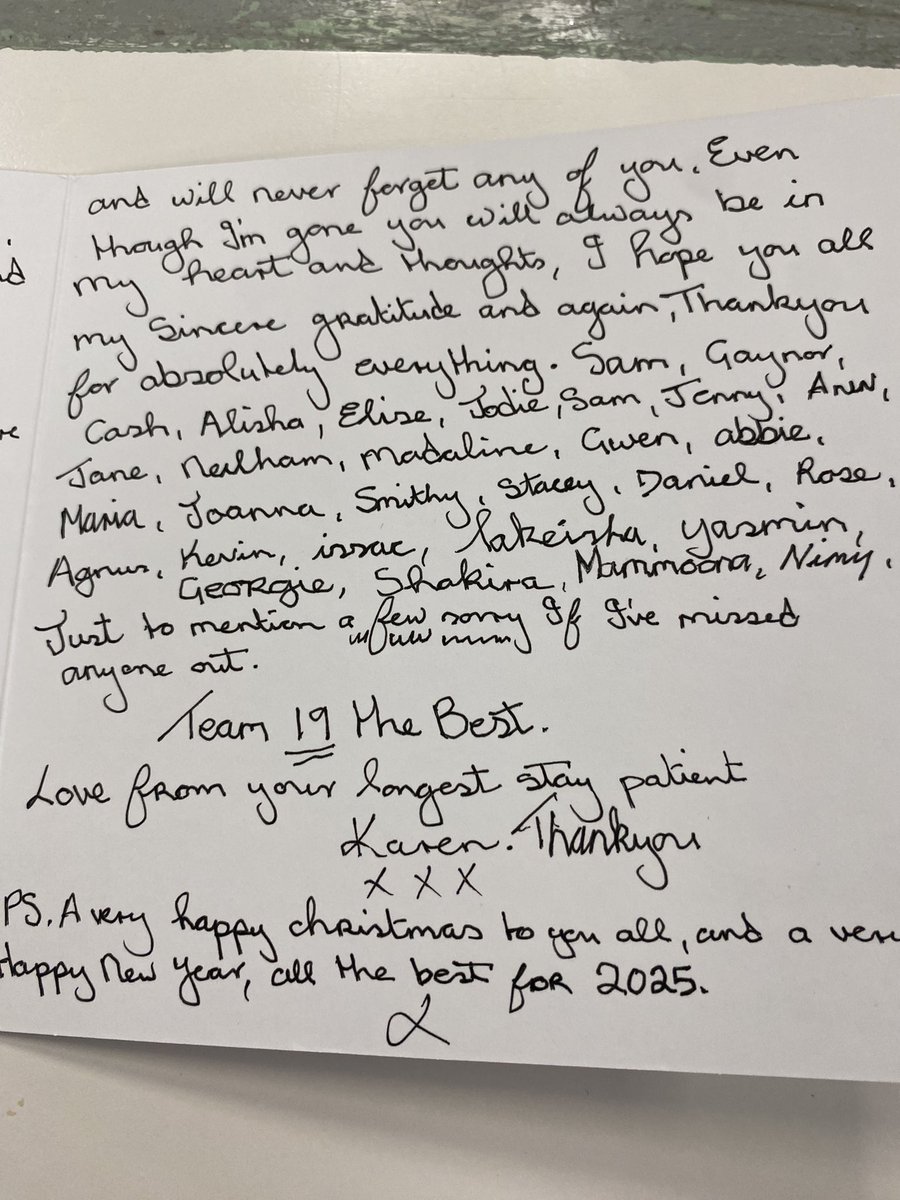 and will never forget any of you. Even
though I'm gone you will always be in
my heart and thoughts, I hope you all
my sincere gratitude and again, Thankyou
for absolutely everything. Sam, Gaynor,
Cash, Alisha, Elise, Jodie, Sam, Jenny, 
Jane, Neilham, Madaline, Gwen, abbie,
Maria, Joanna, Smithy, Stacey, Daniel, Rose,
Agnus, Kevin, issac, lakeisha, yasmin,
Georgie, Shakira, Mammoona, Nimy,
Just to mention a few sorry If I've missed
anyone out.
Team 19 the Best.
Love from your longest stay patient
Karen. Thankyou
x x x
PS. A very happy christmas to you all, and a very
Happy New Year, all the best for 2025.